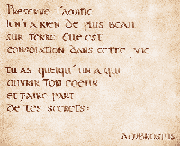 Préserve l'amitié
Il n'y a rien de plus beau
sur terre. Elle est
consolation dans cette vie
Tu as quelqu'un à qui
ouvrir ton coeur
et faire part
de tes secrets.